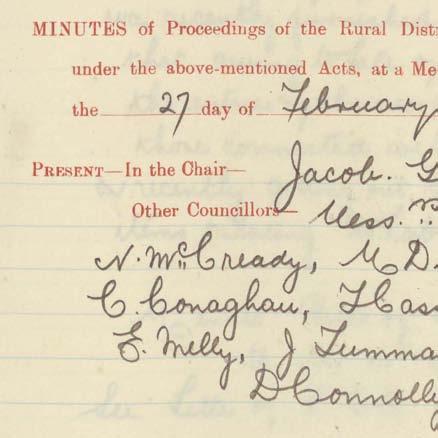 MINUTES of Proceedings of the Rural Distr
under the above-mentioned Acts, at a Me
the 27 day of February
PRESENT—In the Chair— Jacob. G
Other Councillors— Mess. rs
N. McCready, M D
C. Conaghan, J Cass
E. Melly, J Timma
D Connolly